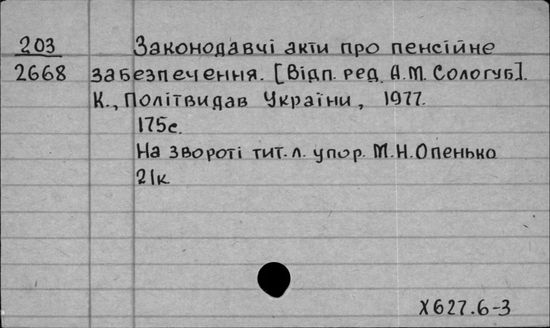 203 Законодавчі акти про пенсійне
2668 забезпечення. [Відп. ред. А.М. Сологуб].
К., Політвидав України, 1977.
175с.
На звороті тит. л. упор. М.Н.Опенько
21к
Х627.6-3